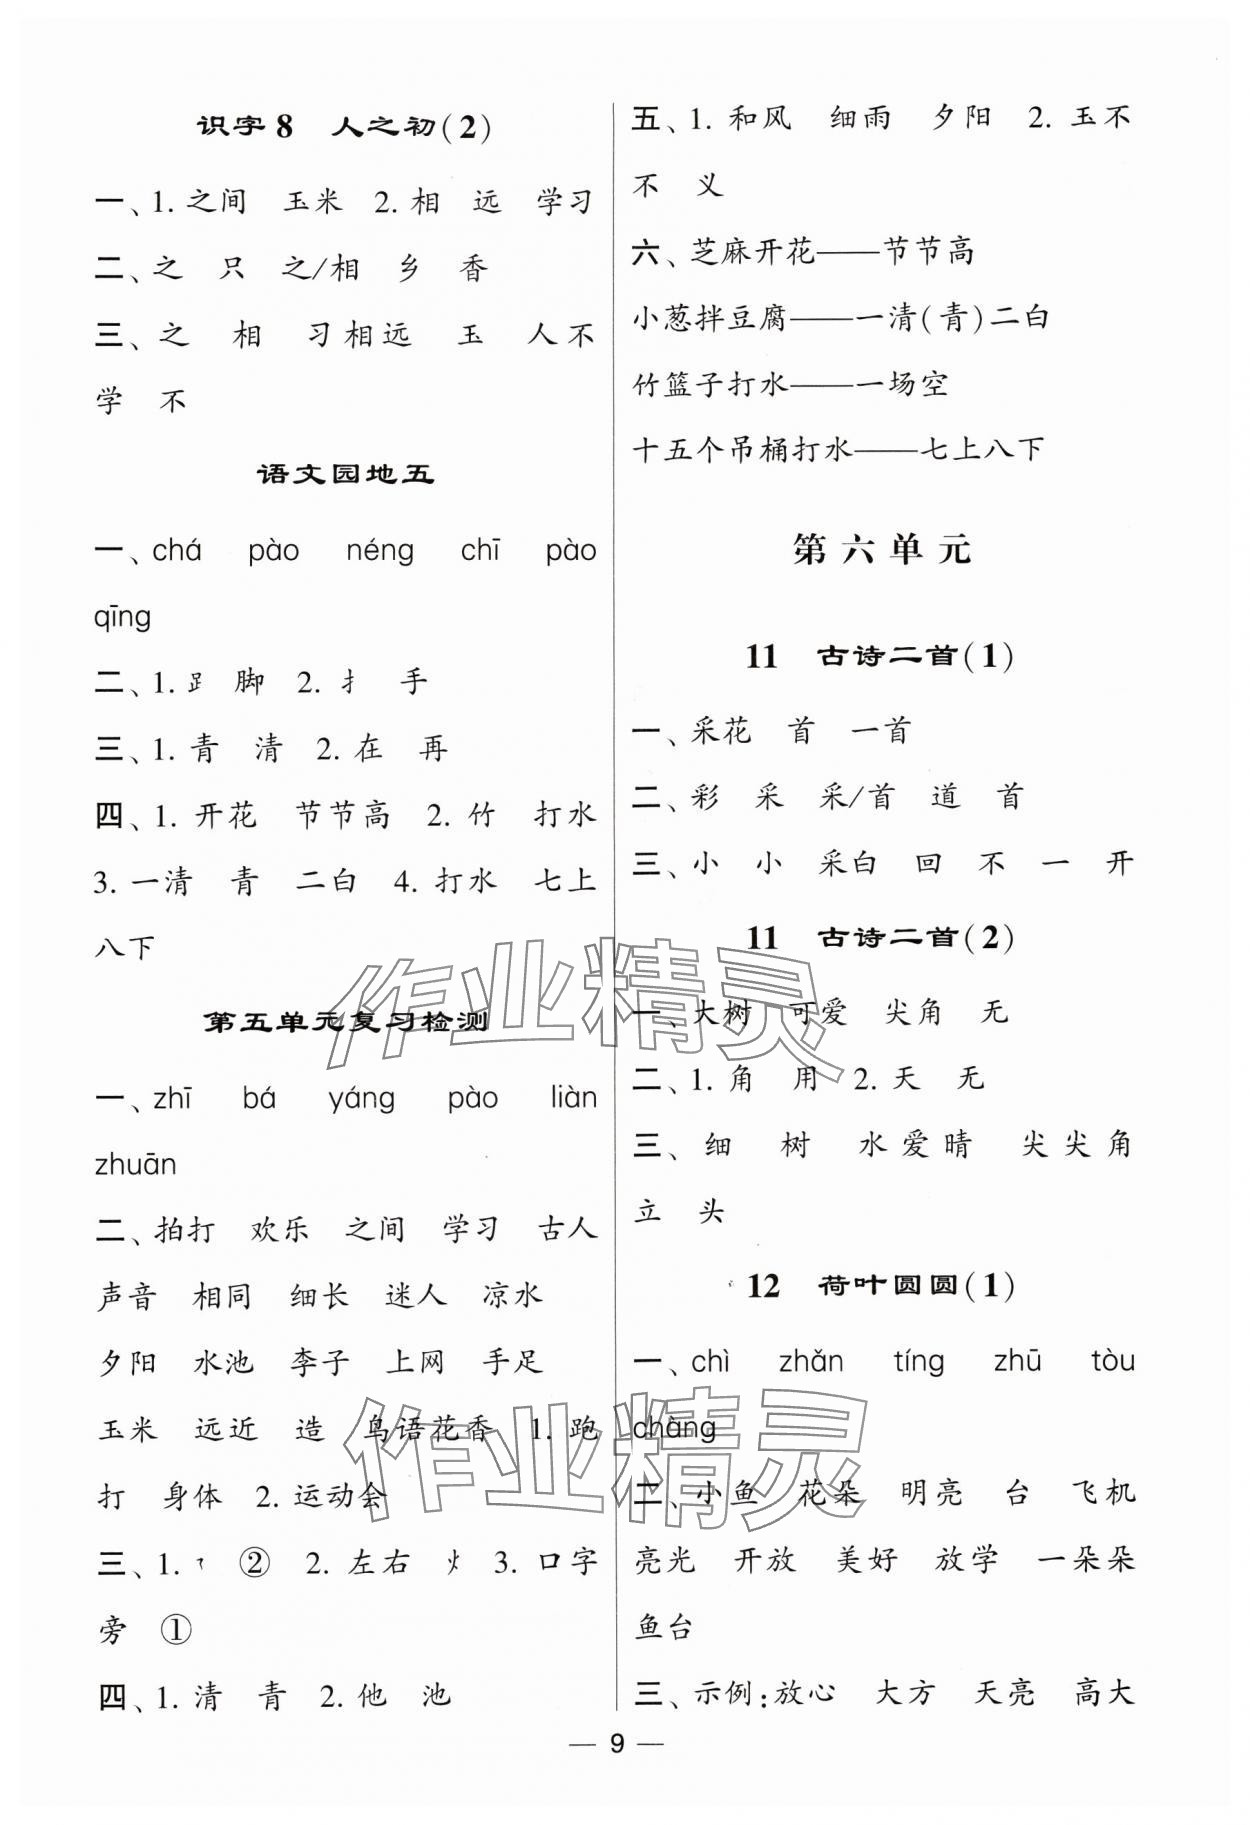 识字8 人之初(2)
一、1. 之间 玉米 2. 相 远 学习
二、之 只 之/相 乡 香
三、之 相 习相远 玉 人不
学 不
语文园地五
一、chá pào néng chī pào
qīng
二、1. 𧾷 脚 2. 扌 手
三、1. 青 清 2. 在 再
四、1. 开花 节节高 2. 竹 打水
3. 一清 青 二白 4. 打水 七上
八下
第五单元复习检测
一、zhī bá yáng pào liàn
zhuān
二、拍打 欢乐 之间 学习 古人
声音 相同 细长 迷人 凉水
夕阳 水池 李子 上网 手足
玉米 远近 造 鸟语花香 1. 跑
打 身体 2. 运动会
三、1. ② 2. 左右 3. 口字
旁 ①
四、1. 清 青 2. 他 池
五、1. 和风 细雨 夕阳 2. 玉不
不 义
六、芝麻开花——节节高
小葱拌豆腐——一清(青)二白
竹篮子打水——一场空
十五个吊桶打水——七上八下
第六单元
11 古诗二首(1)
一、采花 首 一首
二、彩 采 采/首 道 首
三、小 小 采白 回 不 一 开
11 古诗二首(2)
一、大树 可爱 尖角 无
二、1. 角 用 2. 天 无
三、细 树 水爱晴 尖尖角
立 头
12 荷叶圆圆(1)
一、chì zhǎn tíng zhū tòu
chàng
二、小鱼 花朵 明亮 台 飞机
亮光 开放 美好 放学 一朵朵
鱼台
三、示例:放心 大方 天亮 高大
— 9 —
作业精灵
作业精灵